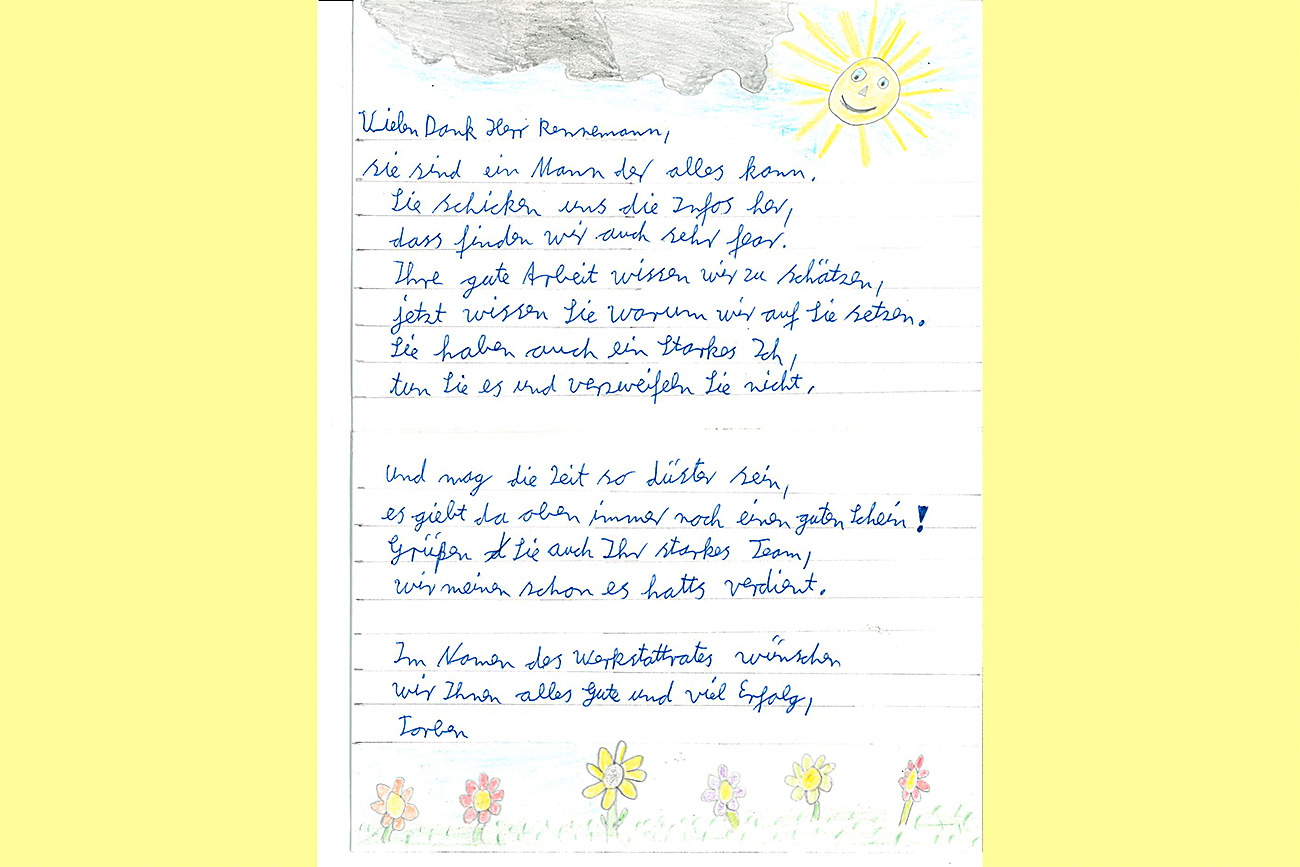 Vielen Dank Herr Rennemann,
sie sind ein Mann der alles kann.
Sie schicken uns die Infos her,
dass finden wir auch sehr fear.
Ihre gute Arbeit wissen wir zu schätzen,
jetzt wissen Sie warum wir auf Sie setzen.
Sie haben auch ein Starkes Ich,
tun Sie es und verzweifeln Sie nicht.
Und mag die Zeit so düster sein,
es giebt da oben immer noch einen guten Schein!
Grüßen Sie auch Ihr starkes Team,
wir meinen schon es hatts verdient.
Im Namen des Werkstattrates wünschen
wir Ihnen alles Gute und viel Erfolg,
Torben